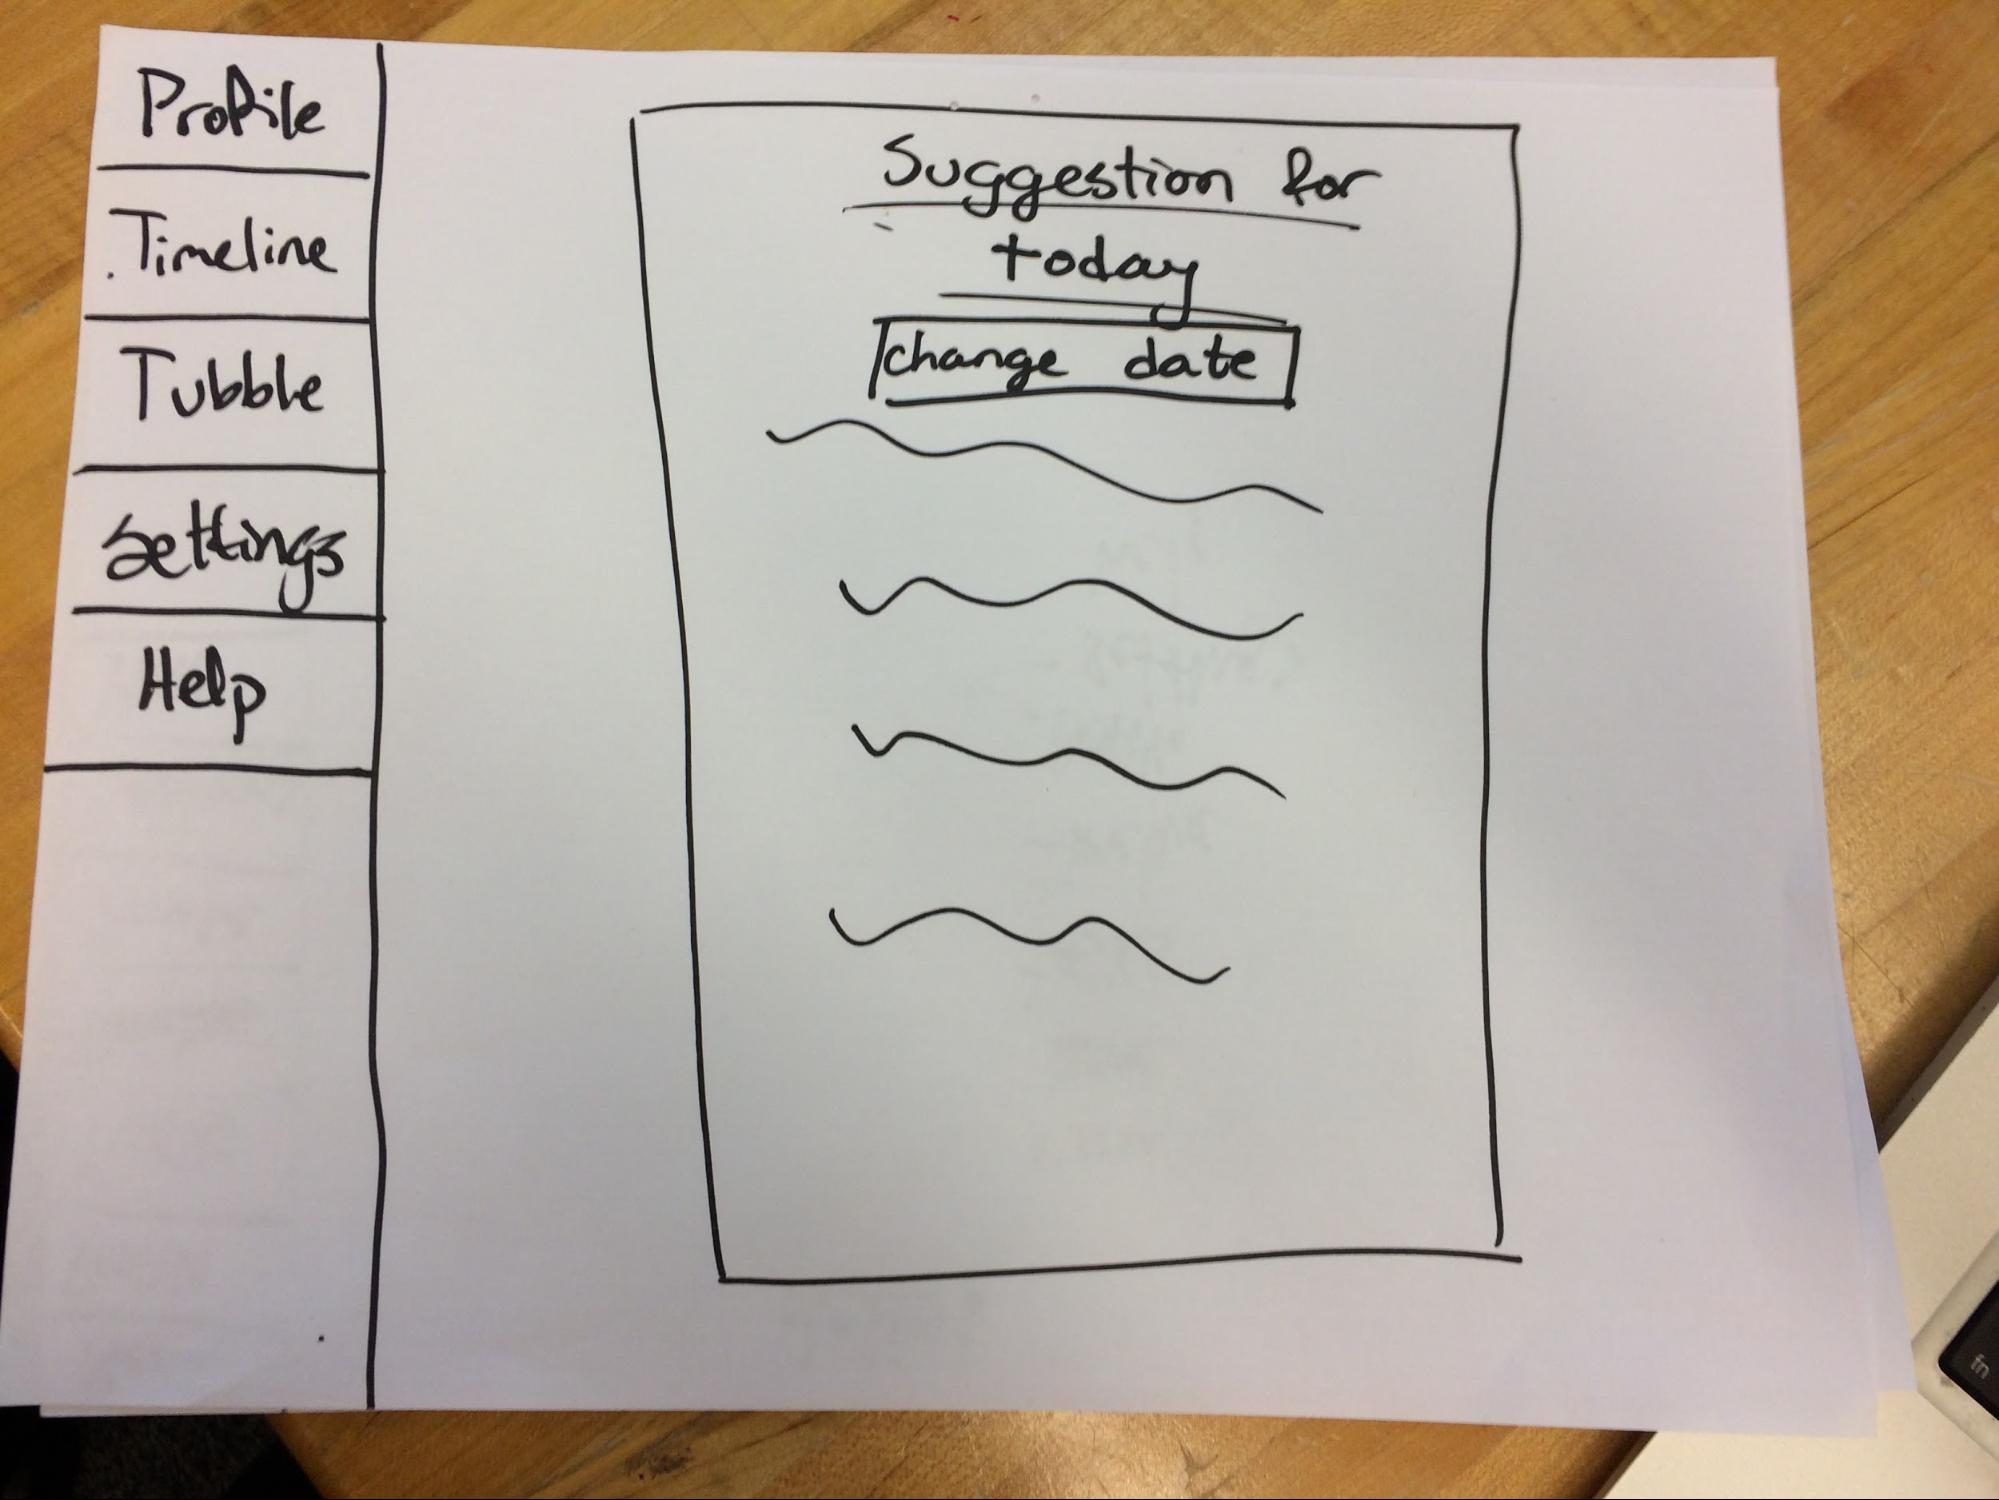 Profile
Timeline
Tubble
Settings
Help
Suggestion for
today
change date
fn